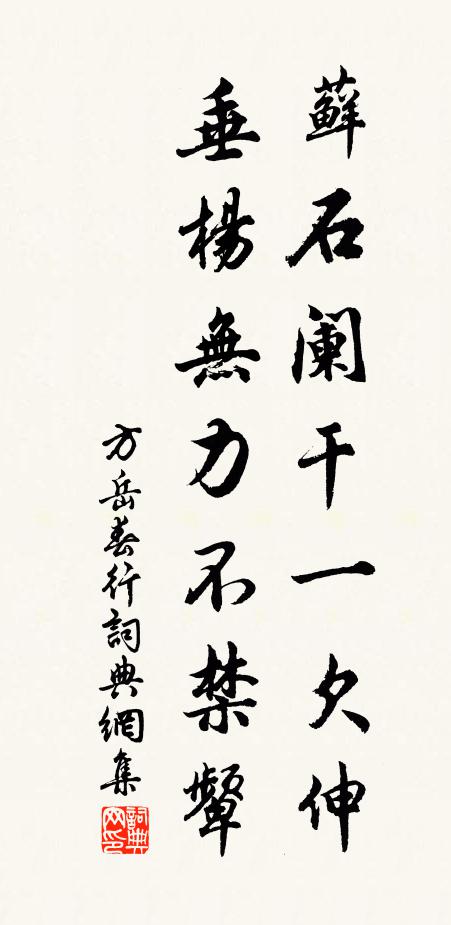 蘚石闌干一欠伸
垂楊無力不禁颦
方岳春行詞典網集
詞典網印